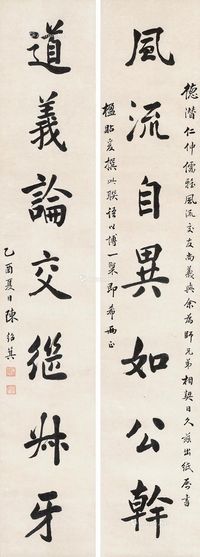 德潛仁仲儒雅風流交友尚義與余為師兄弟相契日久茲出紙屬書
風流自異如公幹
楹帖爰撰此聯語以博一粲即希兩正
道義論交繼叔牙
乙酉夏日陳伯其